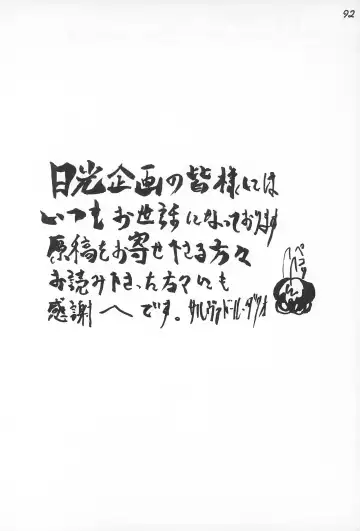 92
日光企画の皆様には
いつもお世話になっております
原稿をお寄せ下さる方々
お読み下さった方々にも
感謝へです。サルヴァドール・ダツオ
ペコッ